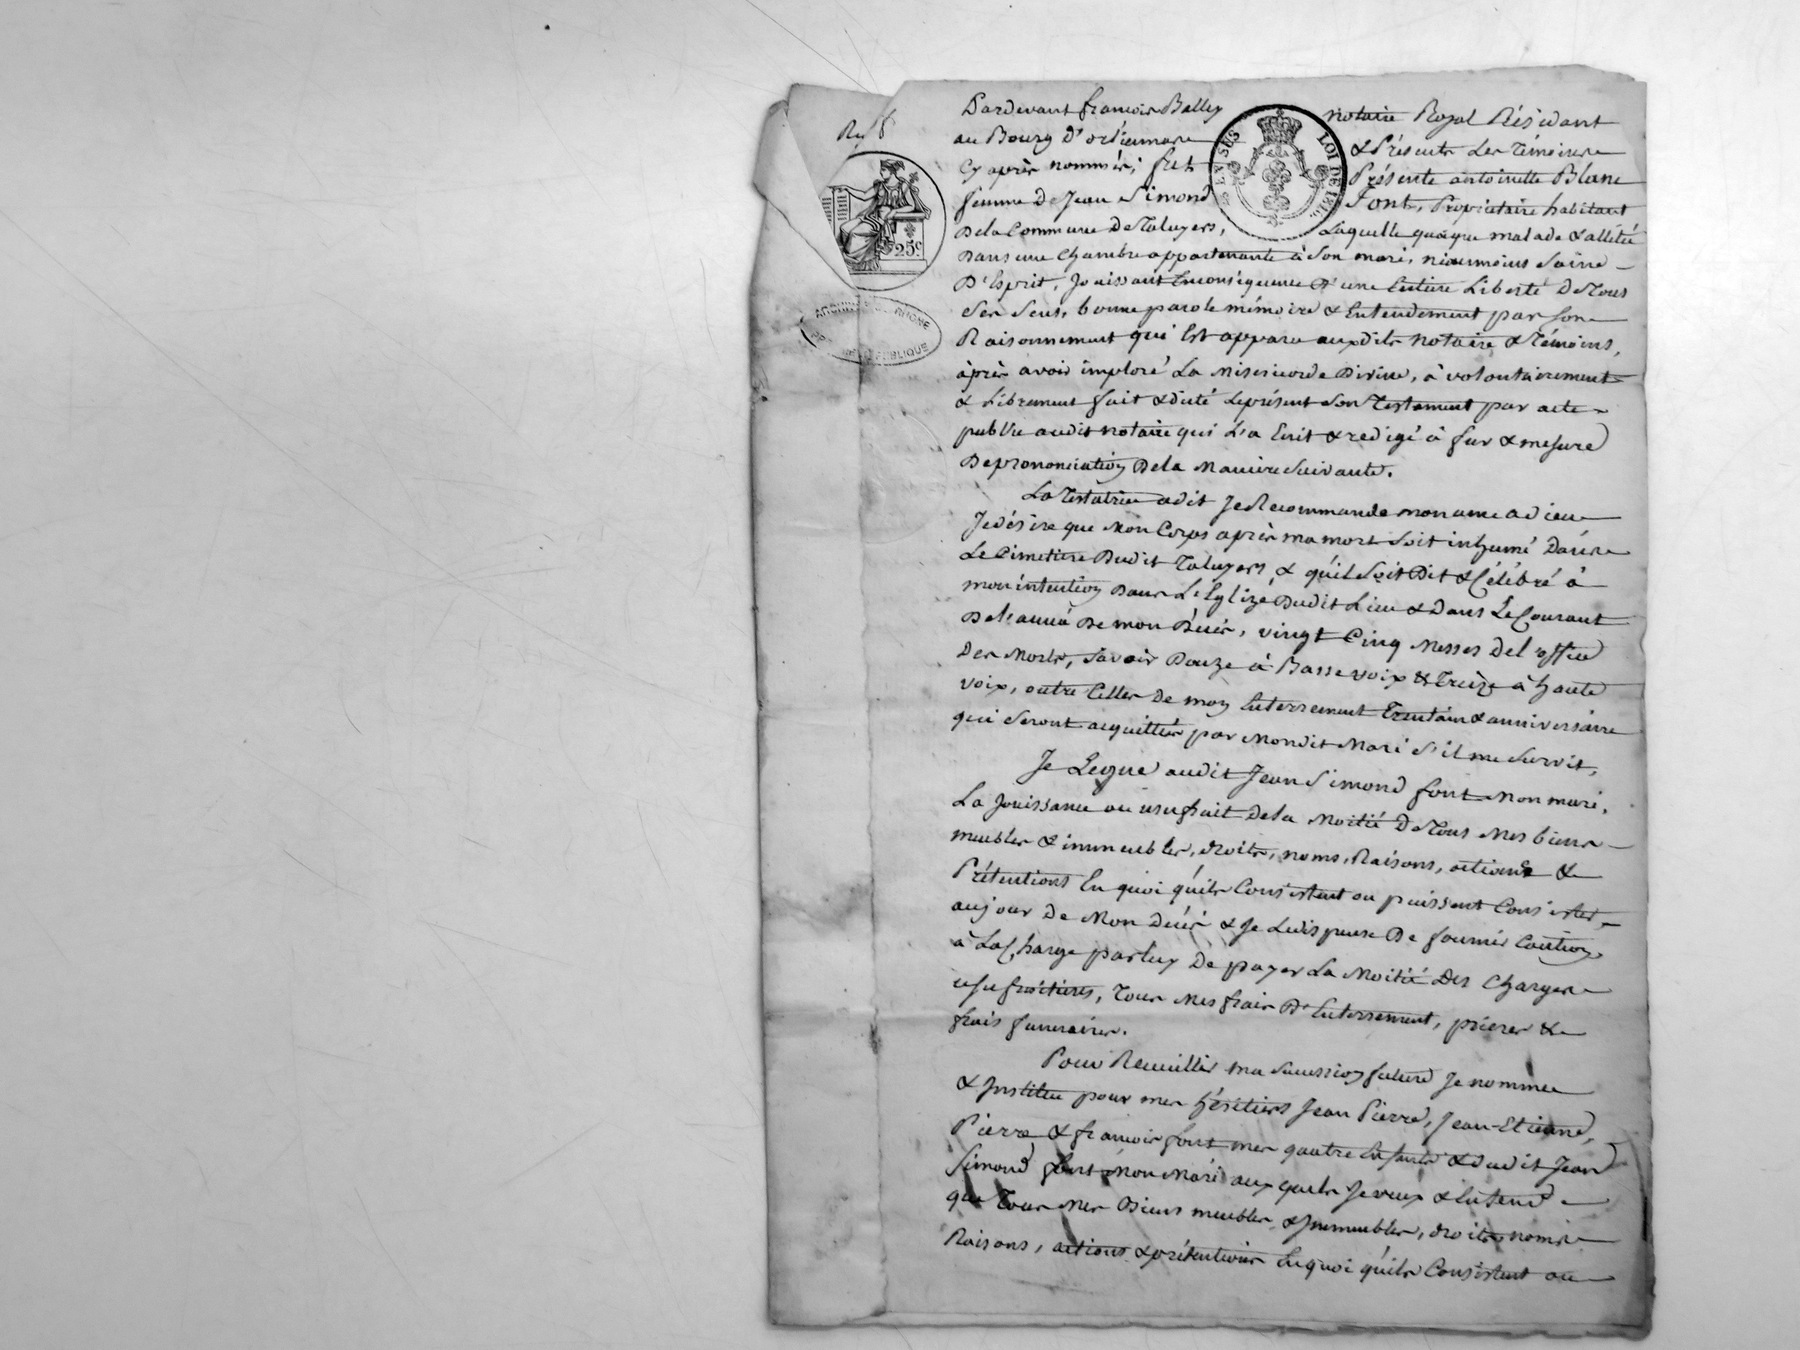 Rep
25c.
ARCHIVES DU RHONE
REPUBLIQUE
EN SUS
LOI DE
Pardevant françois Balley notaire Royal Résidant
au Bourg d'orliennas & Présents les témoins
Cy après nommés; fut Présente antoinette Blanc
femme De Jean Simond Font, Propriétaire habitant
Dela Commune De Taluyers, Laquelle quoique malade & allitée
Dans une Chambre appartenante à Son mari, néaumoins Saine
D'Esprit, Jouissant Enconséquence D'une Entiere Liberté De Tous
Ses Sens, bonne parole mémoire & Entendement par Son
Raisonnement qui Est apparu auxdits notaire & Témoins,
àprès avoir imploré La Misericorde Divine, à volontairement
& Librement fait & dicté Leprésent Son Testament par acte
public audit notaire qui L'a Ecrit & redigé à fur & mesure
De prononciation Dela Maniere Suivante.
La Testatrice a dit Je Recommande mon ame a dieu
Je désire que Mon Corps après ma mort Soit inhumé Dans
Le Cimetiere Dudit Taluyers, & qu'il Soit Dit & Célébré à
mon intention Dans L'Eglize Dudit Lieu & Dans Le Courant
De l'année De mon Décés, vingt Cinq Messes De l'office
Des Morts, Savoir Douze à Basse voix & Treize à haute
voix, outre Celles De mon Enterrement Trentain & anniversaire
qui Seront acquittées par Mondit Mari S'il me Survit,
Je Legue audit Jean Simond font Mon mari,
La Jouissance ou usufruit Dela Moitié De Tous Mes biens
meubles & immeubles, droits, noms, Raisons, actions &
Prétentions En quoi qu'ils Consistent ou puissent Consister
au jour De Mon Décés & Je Ledispense De fournir Caution,
à La Charge par luy De payer La Moitié Des Charges
usufruitieres, Tous Mes frais D'Enterrement, prieres &
frais funeraires.
Pour Recueillir ma Succession future Je nomme
& Institue pour mes héritiers Jean Pierre, Jean-Etienne,
Pierre & françois font mes quatre Enfants & dudit Jean
Simond font Mon Mari auxquels Je veux & Entend
que Tous Mes Biens meubles & Immeubles, droits noms
Raisons, actions & prétentions Enquoi qu'ils Consistent ou